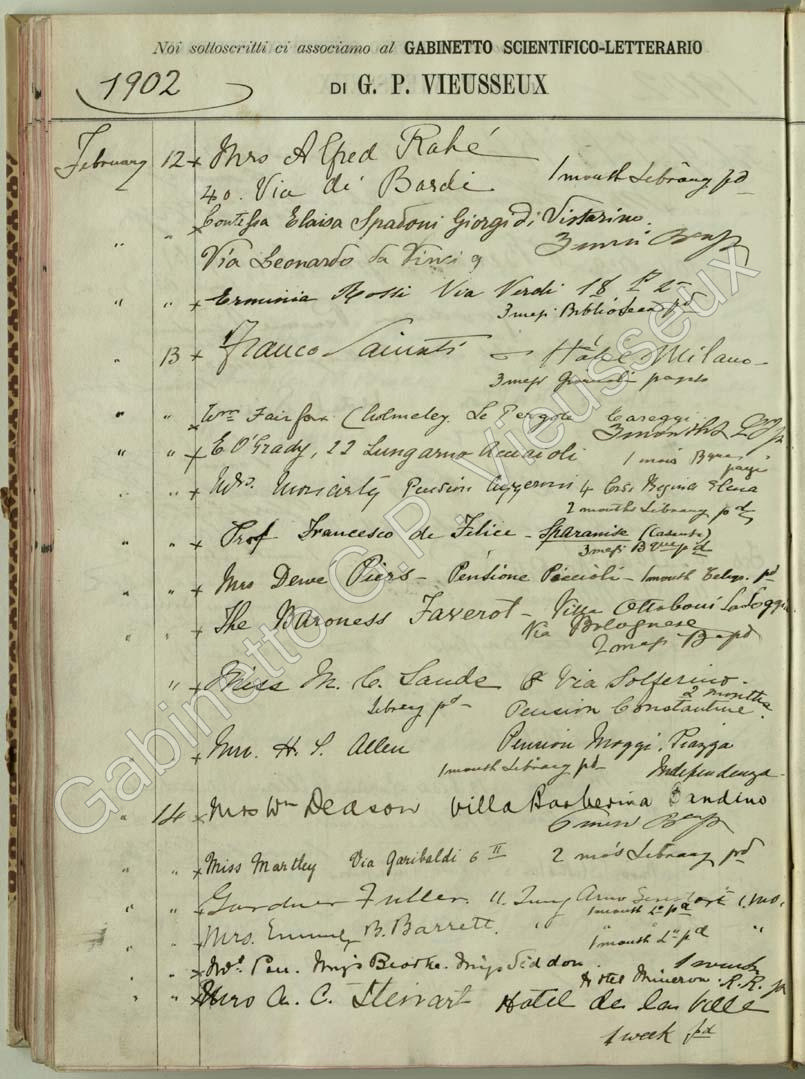 Noi sottoscritti ci associamo al GABINETTO SCIENTIFICO-LETTERARIO
1902
DI G. P. VIEUSSEUX
February 12 x Mrs Alfred Rahé
40. Via di Bardi 1 month Library pd
" " x Contessa Eloisa Spadoni Giorgi di Vistarino
Via Leonardo da Vinci 9 3 mesi
" " x Erminia Rossi Via Verdi 18 p 2o
3 mesi Biblioteca pd
" 13 x Franco Hôtel Milano
3 mesi Giornali
" " x Wm Fairfax Cholmeley Le Pergole Careggi
3 months
" " x E O'Grady, 22 Lungarno Acciaioli
1 mois
" " x Mrs. Moriarty Pension 4 Corso Regina Elena
2 months Library pd
" " x Prof Francesco de Felice - Sparanise (Caserta)
3 mesi pd
" " x Mrs Dewe Piers - Pensione Piccioli - 1 month pd
" " x The Baroness Faverot - Villa Ottoboni La Loggia
Via Bolognese
2 mesi pd
" x Miss M. C. Via Solferino
2 months
Library pd Pension Constantine
x H. S. Allen Pension Moggi. Piazza
1 month Library pd Independenza
" 14 x Mrs Wm Deason Villa Barberina Bandino
6 mesi
" " x Miss Martley Via Garibaldi 6 II 2 mo's Library pd
" " x Gardner Fuller. 11 Lung Arno 1 mo.
1 month pd
" " x Mrs. B. Barrett. " "
1 month pd
" " x Miss Brooke. Miss Siddon. 1 week
Hotel Minerva. R.R.
" " x Mrs A. C. Stewart Hotel de la Ville
1 week pd
Gabinetto G.P. Vieusseux